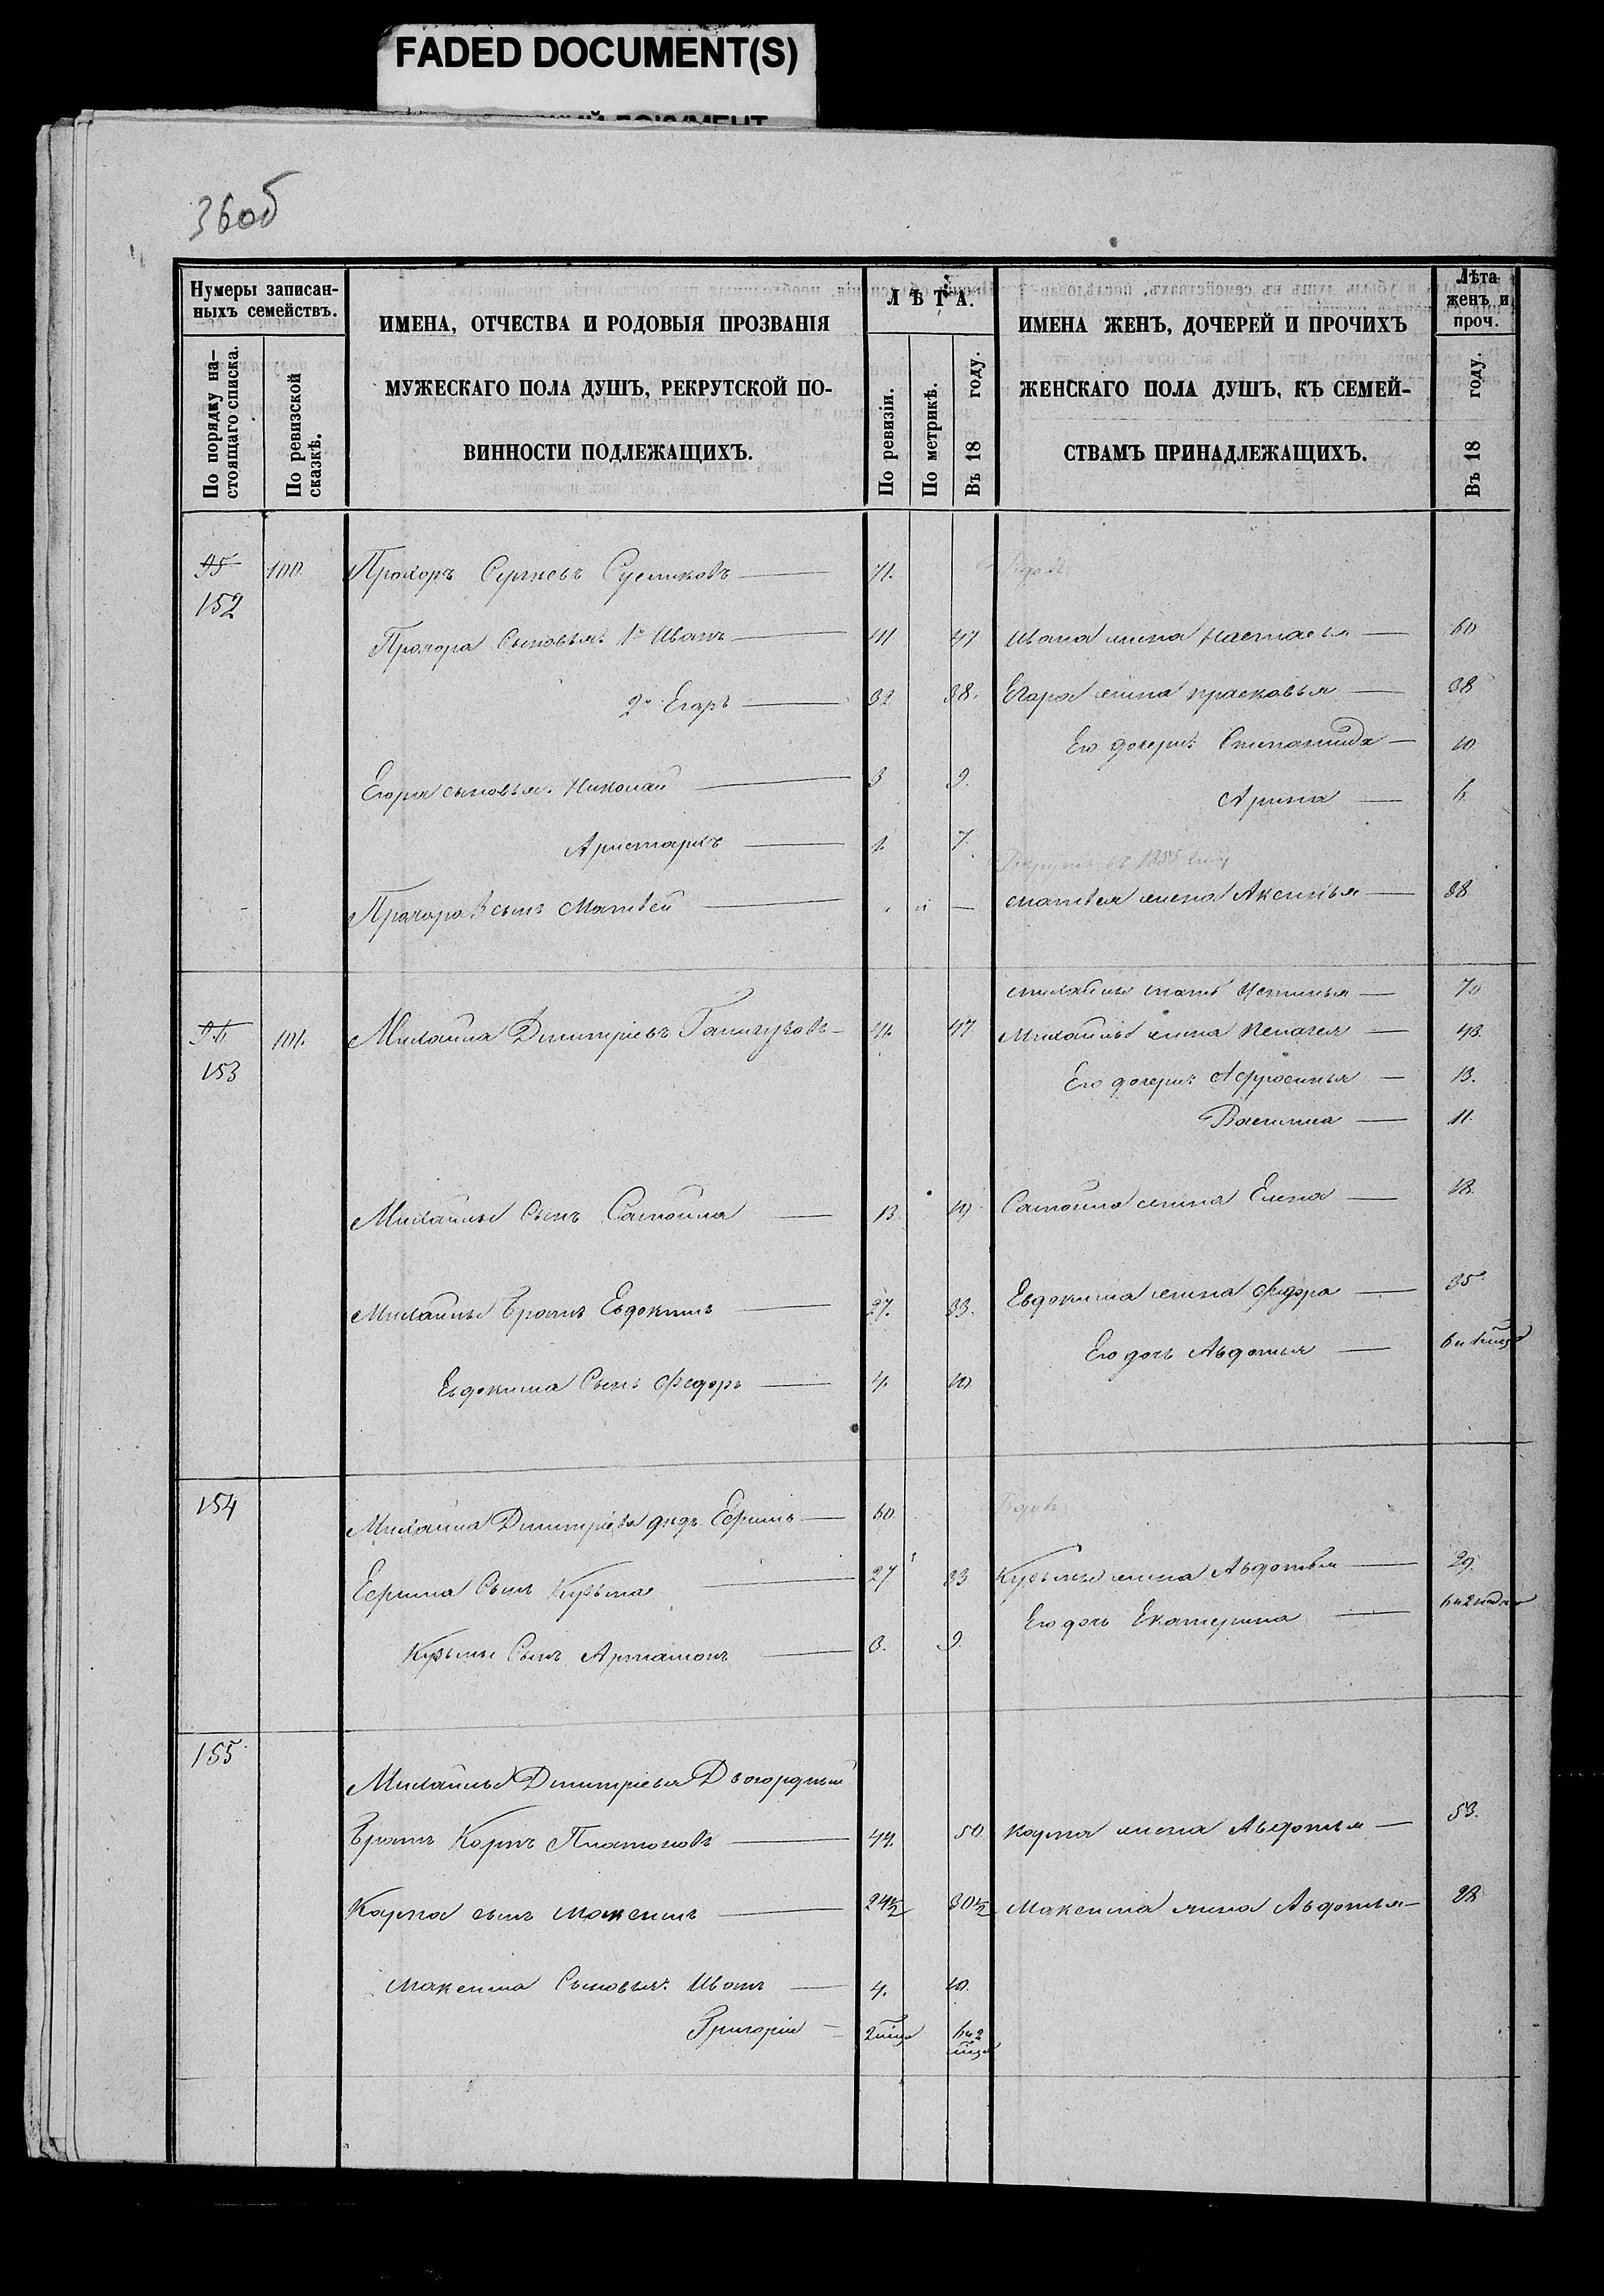 FADED DOCUMENT(S)
36об
Нумеры записан-
ныхъ семействъ.
По порядку на-
стоящаго списка.
По ревизской
сказкѣ.
ИМЕНА, ОТЧЕСТВА И РОДОВЫЯ ПРОЗВАНІЯ
МУЖЕСКАГО ПОЛА ДУШЪ, РЕКРУТСКОЙ ПО-
ВИННОСТИ ПОДЛЕЖАЩИХЪ.
ЛѢТА.
По ревизіи.
По метрикѣ.
Въ 18 году.
ИМЕНА ЖЕНЪ, ДОЧЕРЕЙ И ПРОЧИХЪ
ЖЕНСКАГО ПОЛА ДУШЪ, КЪ СЕМЕЙ-
СТВАМЪ ПРИНАДЛЕЖАЩИХЪ.
Лѣта
женъ и
проч.
Въ 18 году.
95 100 Прохоръ 71. Вдовъ
152
Прохора Сыновья: 1й Иванъ 41 47 Ивана жена Настасья
2й Егаръ 32 38. Егара жена прасковья 38
Его дочери: Степанида 10.
Егора сыновья: Николай 3 9.
Арина
Аристархъ 1. 7.
Рекрутъ въ 1855 году
Прохора 3 сынъ Матвей Матвея жена Аксинья 38
Михайлы мать Устинья 70
96 101. Михайла Дмитріевъ 41. 47 Михайлы жена Пелагея 43.
153
Его дочери: Афросинья 13.
Василиса 11.
Михайлы Сынъ Самойла 13. 19. Самойла жена Елена 18.
Михайлы Братъ Евдокимъ 27. 33. Евдокима жена Федора 35.
Его дочь Авдотья
Евдокима Сынъ Федоръ 4. 10
154
Михайла Дмитріева дядя Ефимъ 60. Вдовъ
Ефима Сынъ Кузьма 27 33 Кузьмы жена Авдотья 29.
Его дочь Екатерина
Кузьмы Сынъ Артамонъ 3. 9.
155
Михайлы Дмитріева Двоюродный
Братъ Карпъ Платоновъ 44. 50. Карпа жена Авдотья 53.
Карпа сынъ Максимъ 24½ 30½ Максима жена Авдотья 28
Максима Сыновья: Иванъ 4. 10.
Григорій